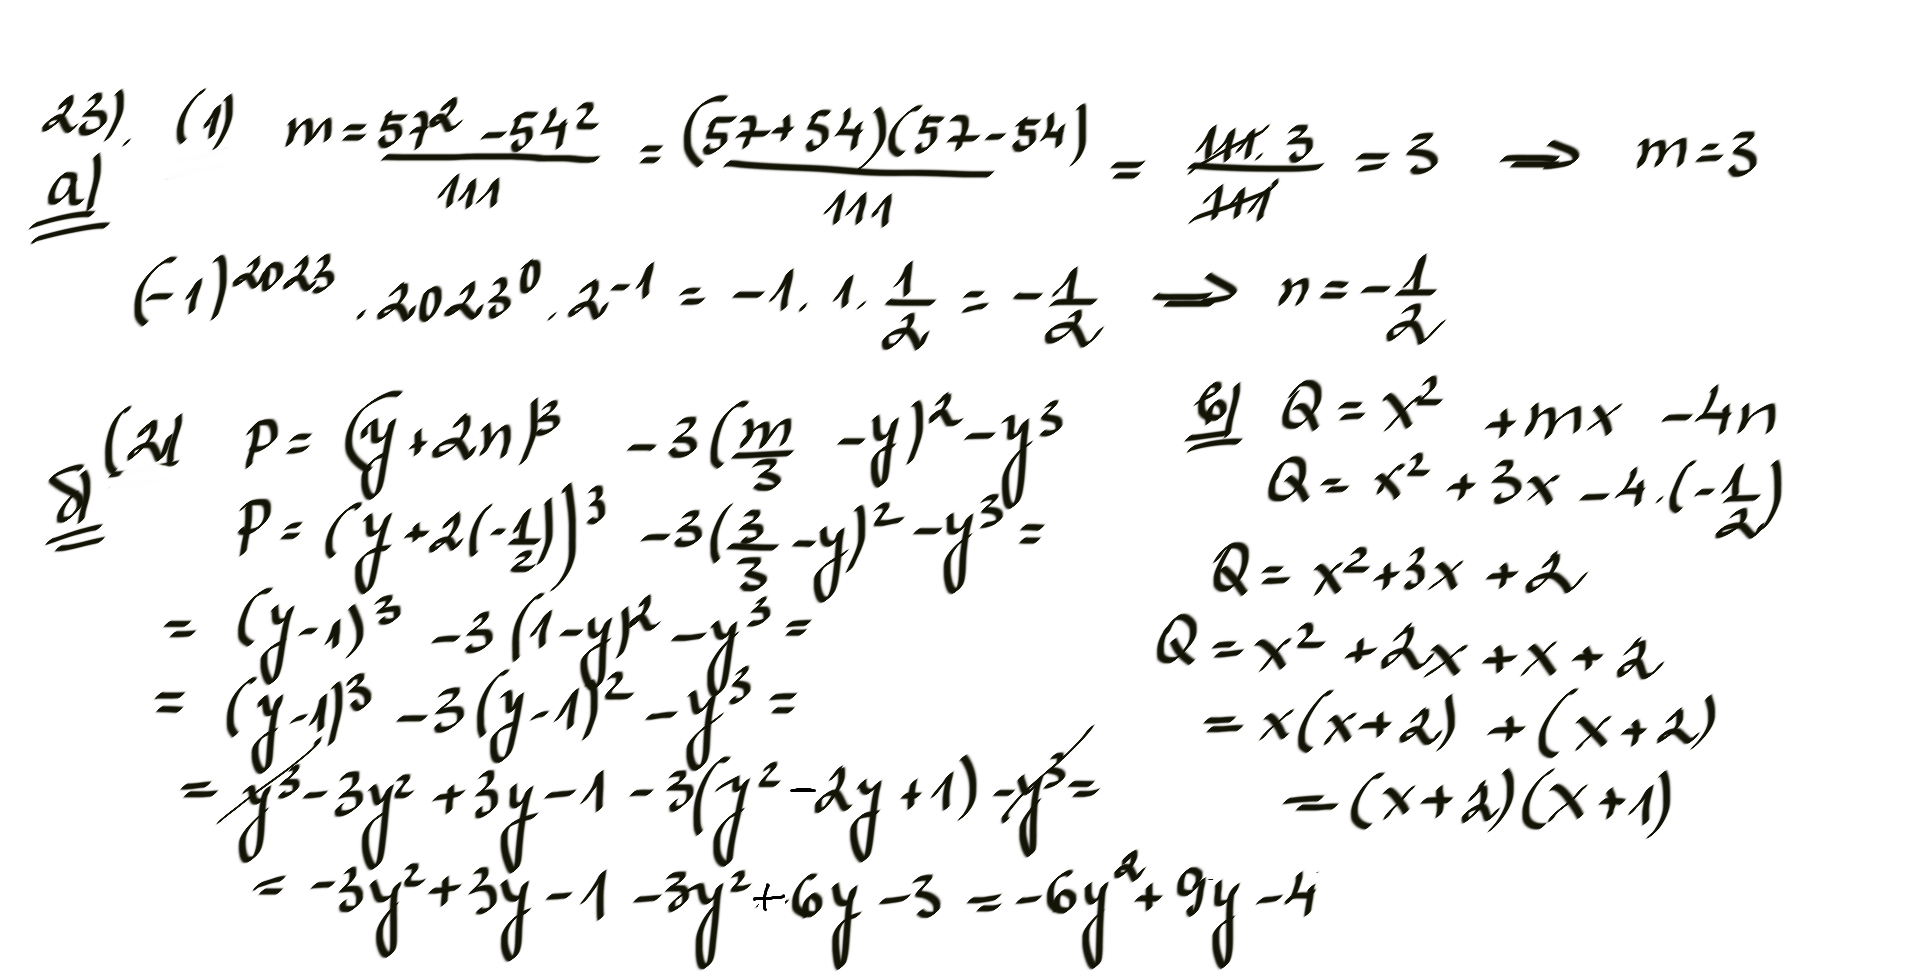 23). (1) m = (57² - 54²)/111 = ((57+54)(57-54))/111 = (111.3)/111 = 3 ⟹ m = 3
а)
(-1)²⁰²³ . 2023⁰ . 2⁻¹ = -1. 1. 1/2 = -1/2 ⟹ n = -1/2
б) (2) P = (y+2n)³ - 3(m/3 - y)² - y³
P = (y+2(-1/2))³ - 3(3/3 - y)² - y³ =
= (y-1)³ - 3(1-y)² - y³ =
= (y-1)³ - 3(y-1)² - y³ =
= y³ - 3y² + 3y - 1 - 3(y² - 2y + 1) - y³ =
= -3y² + 3y - 1 - 3y² + 6y - 3 = -6y² + 9y - 4
в) Q = x² + mx - 4n
Q = x² + 3x - 4.(-1/2)
Q = x² + 3x + 2
Q = x² + 2x + x + 2
= x(x+2) + (x+2)
= (x+2)(x+1)